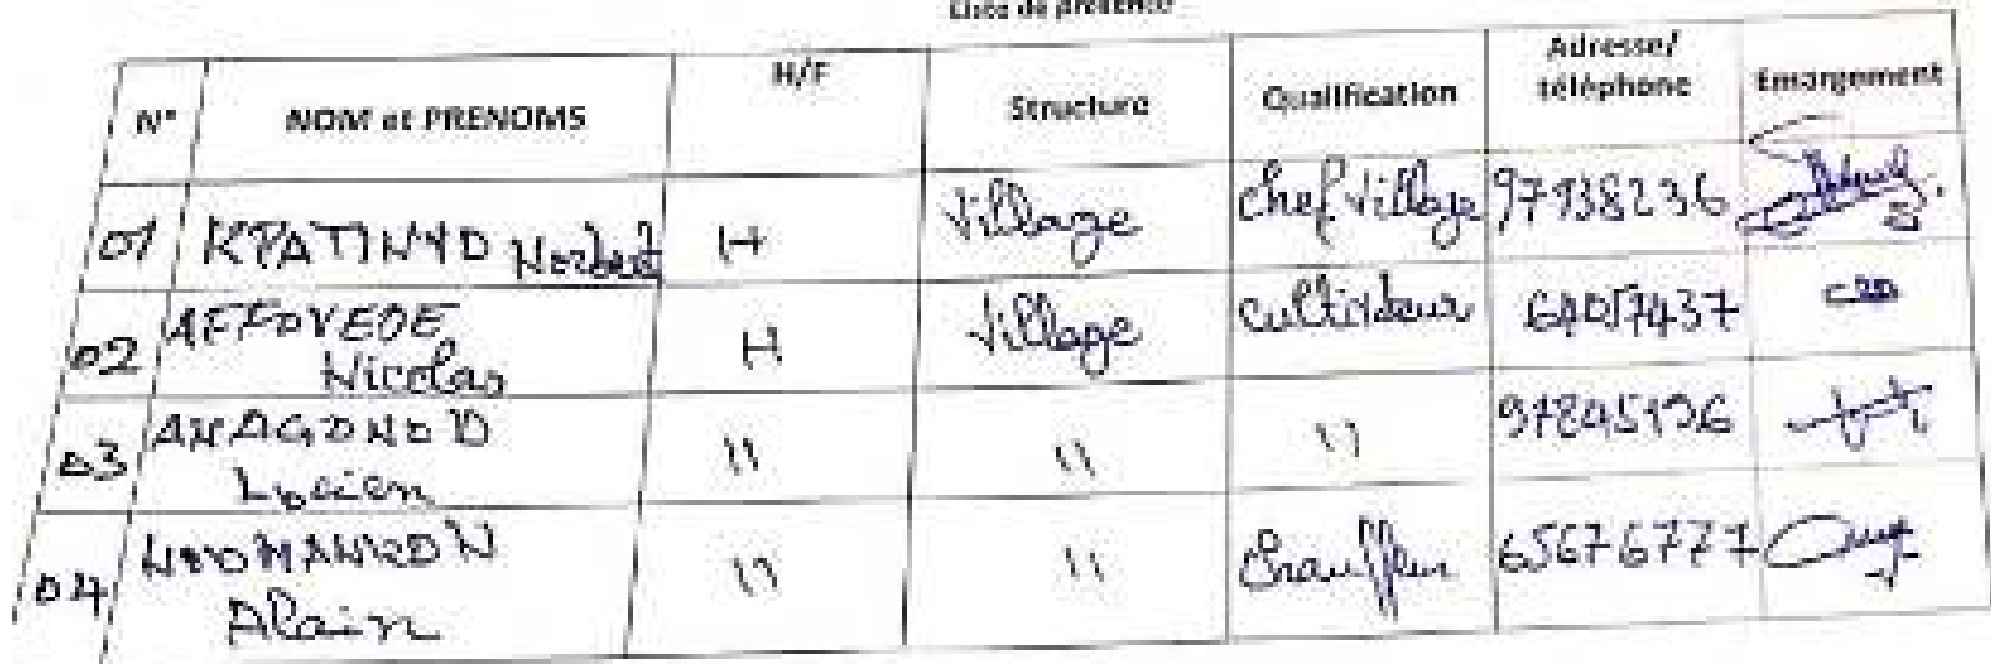 Liste de présence
N° NOM et PRENOMS H/F Structure Qualification Adresse/ téléphone Emargement
01 KPATINVO Norbert H Village Chef Village 97138236
02 AFFOVEDE Nicolas H Village Cultivateur
03 Lucien " " " 97245196
04 Alain " " Chauffeur 65676777